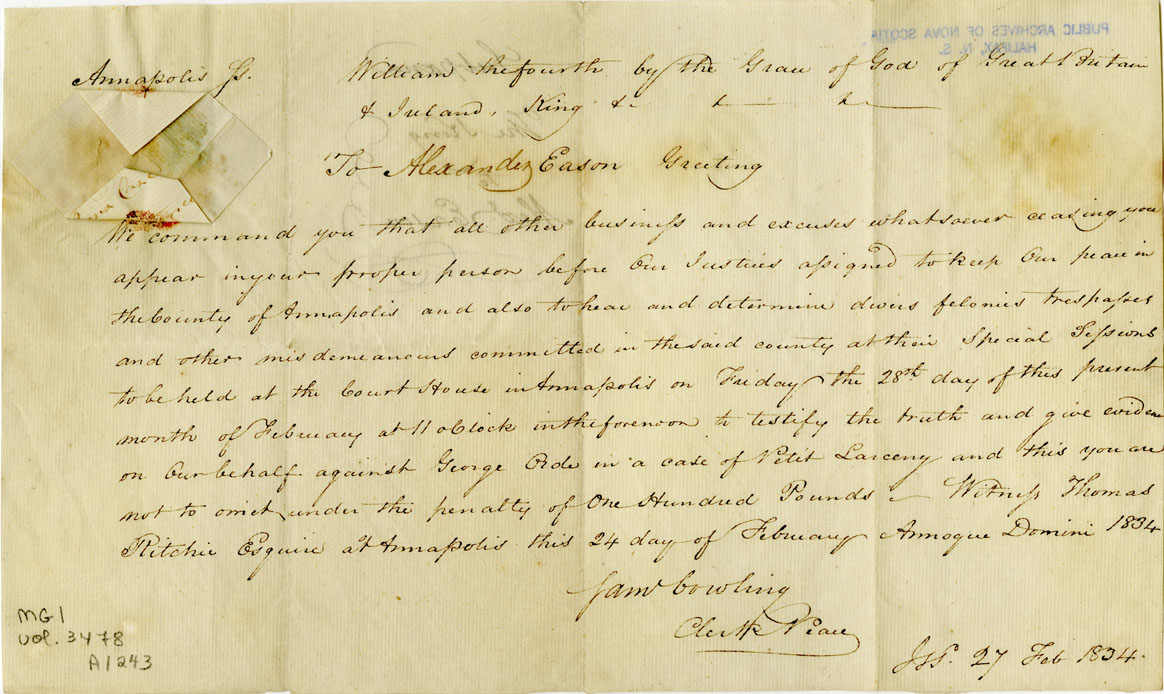 PUBLIC ARCHIVES OF NOVA SCOTIA
HALIFAX, N. S.
Annapolis Ss.
William the fourth by the Grace of God of Great Britain
& Ireland, King &c
To Alexander Eason Greeting
We command you that all other business and excuses whatsoever ceasing you
appear in your proper person before Our Justices assigned to keep Our peace in
the County of Annapolis and also to hear and determine divers felonies trespasses
and other misdemeanours committed in the said county at their Special Sessions
to be held at the Court House in Annapolis on Friday the 28th day of this present
month of February at 11 oClock in the forenoon to testify the truth and give evidence
on Our behalf against George Orde in a case of Petit Larceny and this you are
not to omit under the penalty of One Hundred Pounds – Witness Thomas
Ritchie Esquire at Annapolis this 24 day of February Annoque Domini 1834
Saml Cowling
Clerk Peace
Iss. 27 Feb 1834.
MG1
vol. 3478
A1243